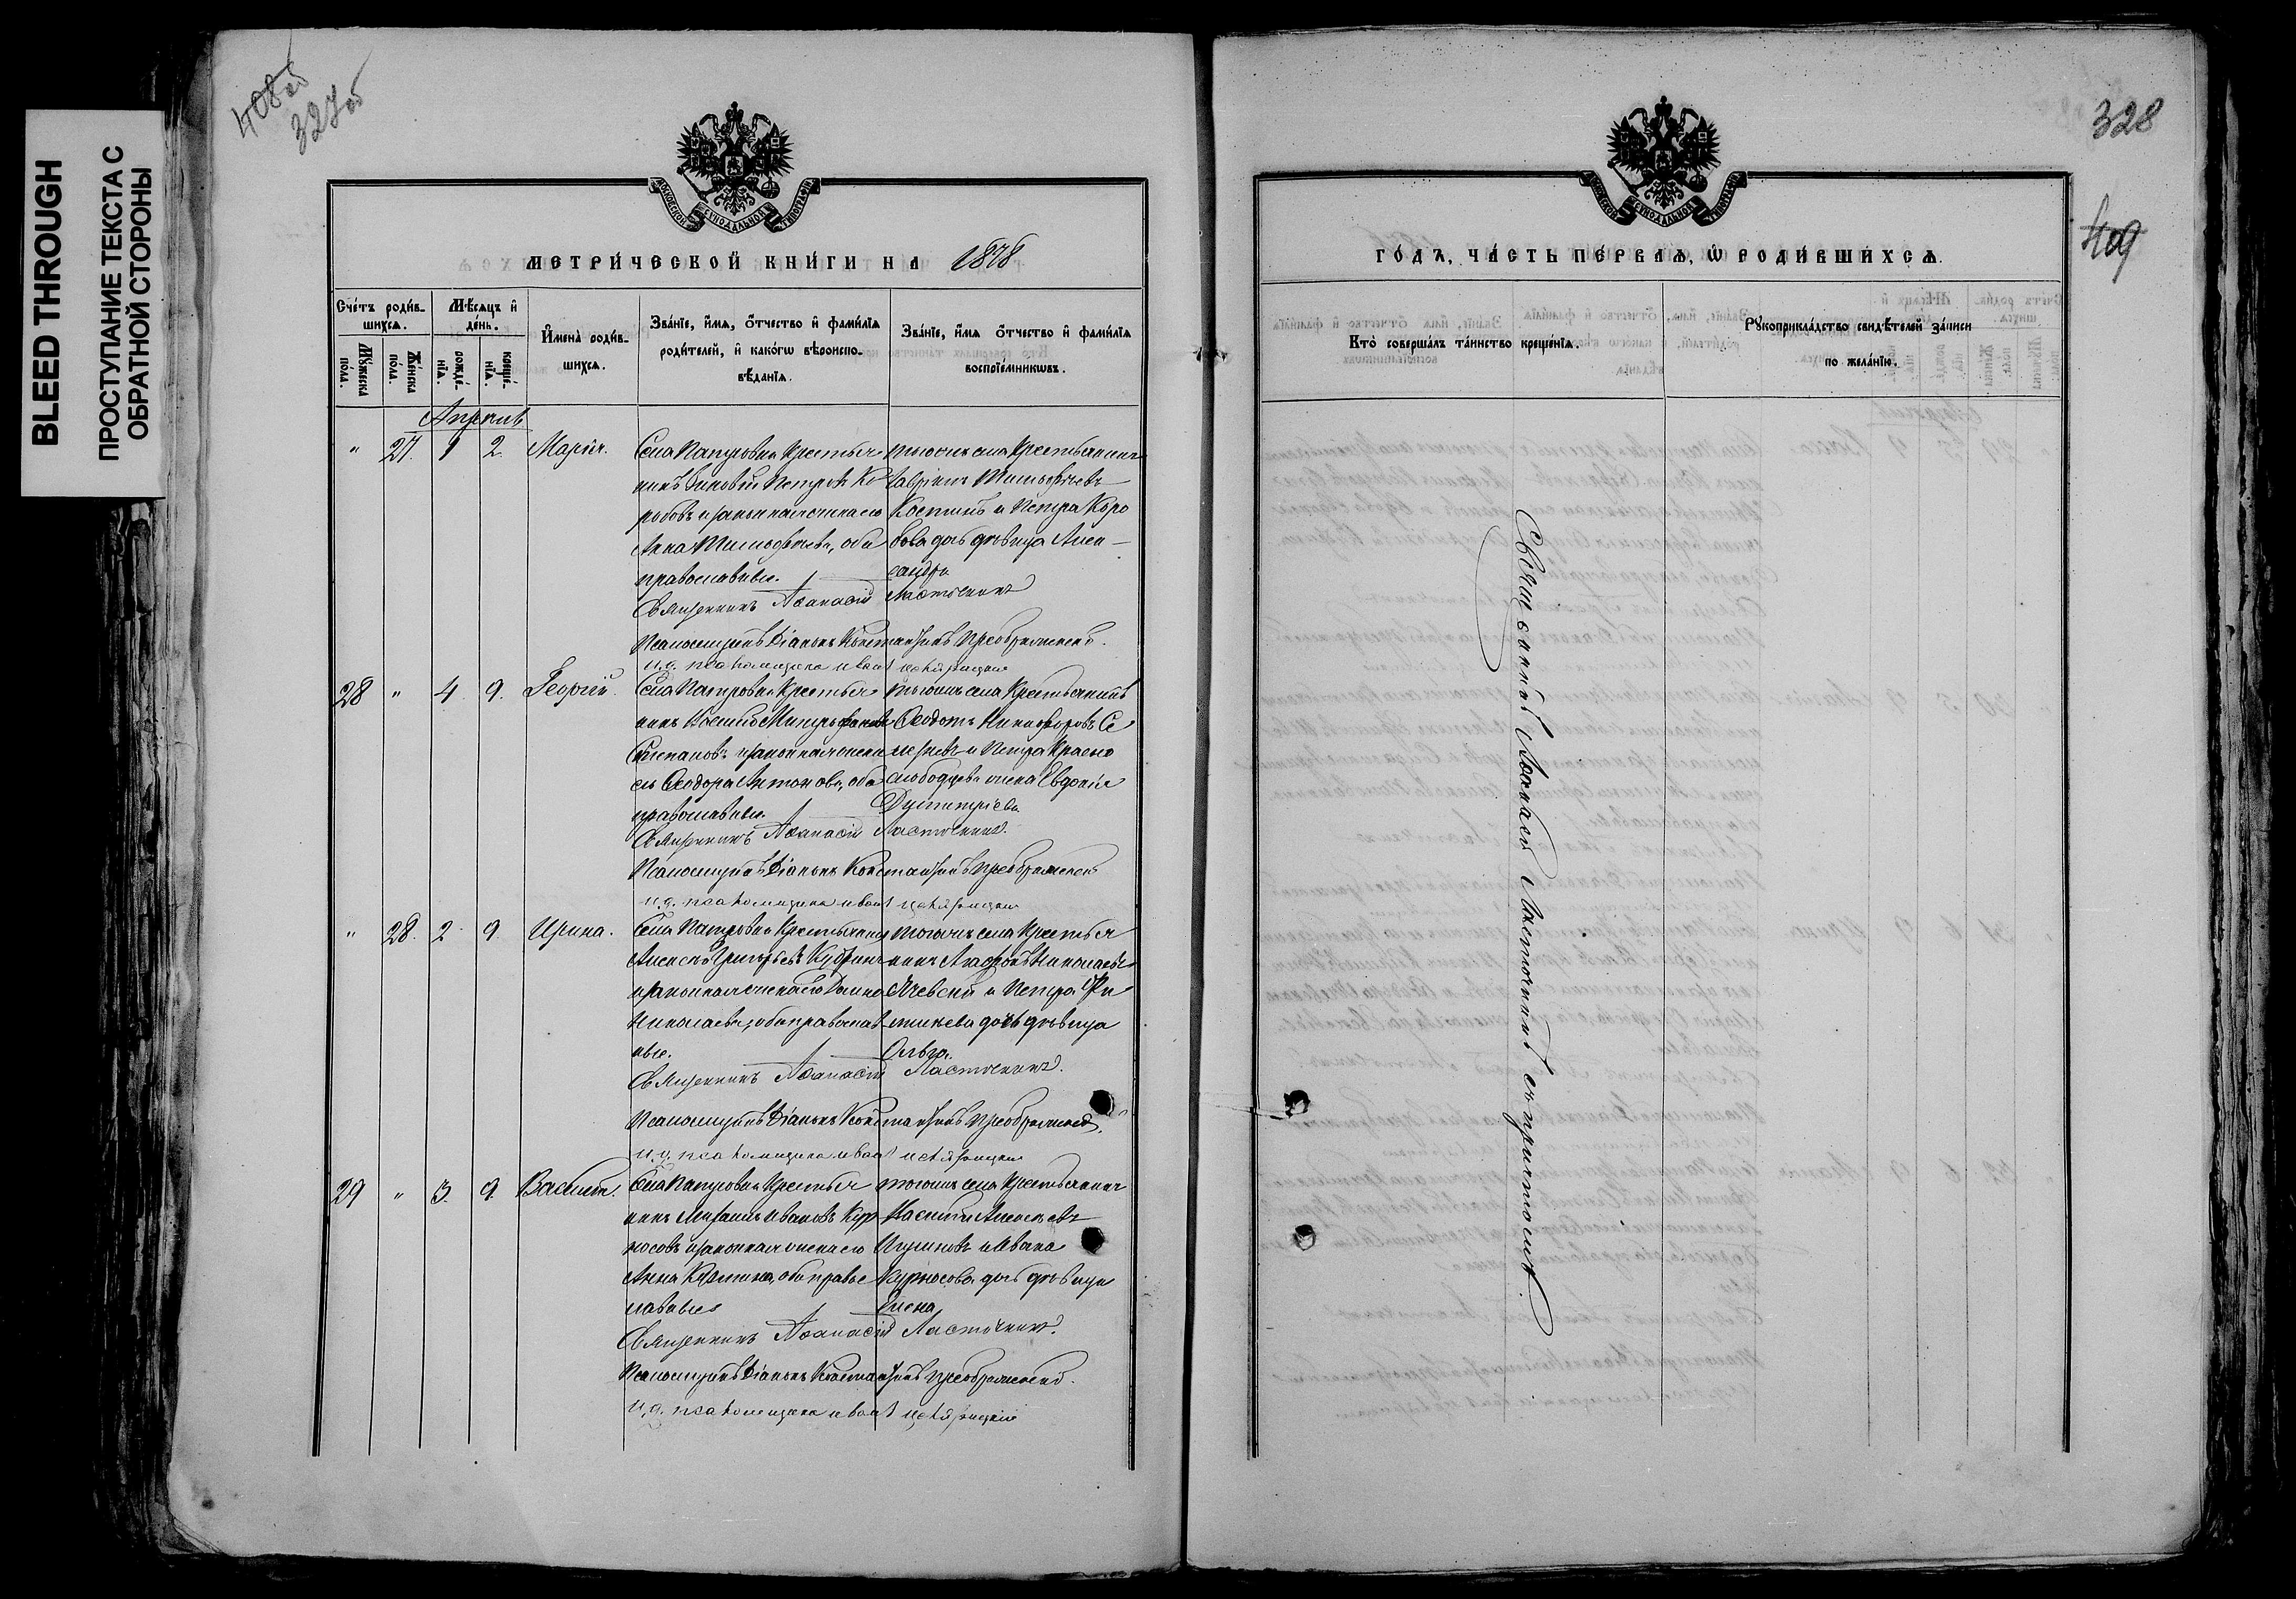 BLEED THROUGH
ПРОСТУПАНИЕ ТЕКСТА С
ОБРАТНОЙ СТОРОНЫ
408об
327об
МОСКОВСКОЙ СУНОДАЛЬНОЙ ТИПОГРАФІИ
МЕТРИ́ЧЕСКОЙ КНИ́ГИ НА 1878
Сче́тъ роди́в-
шихсѧ.
Мѣ́сѧцъ и҆
де́нь.
Мꙋ́жеска по́ла.
Же́нска по́ла.
рожде́-
нїѧ.
креще́-
нїѧ.
И҆мена̀ роди́в-
шихсѧ.
Зва́нїе, и҆́мѧ, ѻ҆́тчество и҆ фамѝлїѧ
роди́телей, и҆ како́гѡ вѣроиспо-
вѣ́данїѧ.
Зва́нїе, и҆́мѧ ѻ҆́тчество и҆ фамѝлїѧ
воспрїе́мникѡвъ.
Апрѣль
" 27. 1 2. Марія.
Села Патровки Крестья
нинъ Зиновій Петровъ Ко
робовъ и законная жена его
Анна Тимофеева, оба
православные.
тогожъ села Крестьянинъ
Гавріилъ Тимофеевъ
Костинъ и Петра Коро
бова дочь девица Алек-
сандра
Священникъ Афанасій Ласточкинъ
Псаломщикъ Діаконъ Константинъ Преображенскій.
и.д. псаломщика Иванъ
28 " 4. 9. Георгій.
Села Патровки Крестья
нинъ Митрофановъ
Степановъ и законная жена
его Феодора Антонова, оба
православные.
тогожъ села Крестьянинъ
Феодотъ Никифоровъ Се
лезневъ и Петра Красно
слободцева жена Евдокія
Димитріева
Священникъ Афанасій Ласточкинъ.
Псаломщикъ Діаконъ Константинъ Преображенскій
и.д. псаломщика Иванъ
" 28. 2. 9. Ирина.
Села Патровки Крестьянинъ
Алексей Григорьевъ
и законная жена его
Николаева, оба православ
ные.
тогожъ села Крестья
нинъ Николаевъ
Ячевскій и Петра
дочь девица
Ольга.
Священникъ Афанасій Ласточкинъ.
Псаломщикъ Діаконъ Константинъ Преображенскій.
и.д. псаломщика Иванъ
29 " 3. 9. Василій.
Села Патровки Крестья
нинъ Михаилъ Ивановъ Кур
носовъ и законная жена его
Анна Козмина, оба правос
лавные
тогожъ села Крестьянинъ
Василій Алексеевъ
и Ивана
Курносова дочь девица
Елена
Священникъ Афанасій Ласточкинъ.
Псаломщикъ Діаконъ Константинъ Преображенскій.
и.д. псаломщика Иванъ
328
409
МОСКОВСКОЙ СУНОДАЛЬНОЙ ТИПОГРАФІИ
ГО́ДЪ, ЧА́СТЬ ПЕ́РВАѦ, Ѡ҆ РОДИ́ВШИХСѦ.
Кто̀ соверша́лъ та́инство креще́нїѧ.
Рꙋкоприкла́дство свидѣ́телей за́писи
по жела́нїю.
Священникъ Афанасій Ласточкинъ съ причтомъ.